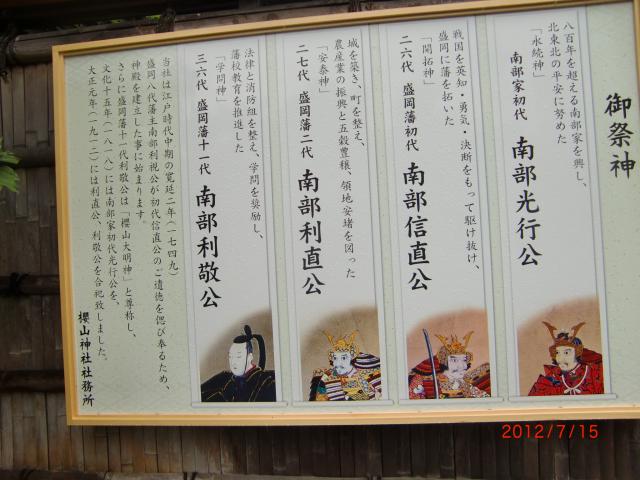 御祭神
八百年を超える南部家を興し、
北東北の平安に努めた
「永続神」
南部家初代 南部光行公
戦国を英知・勇気・決断をもって駆け抜け、
盛岡に藩を拓いた
「開拓神」
二六代 盛岡藩初代 南部信直公
城を築き、町を整え、
農産業の振興と五穀豊穣、領地安堵を図った
「安泰神」
二七代 盛岡藩二代 南部利直公
法律と消防組を整え、学問を奨励し、
藩校教育を推進した
「学問神」
三六代 盛岡藩十一代 南部利敬公
当社は江戸時代中期の寛延二年(一七四九)
盛岡八代藩主南部利視公が初代信直公のご遺徳を偲び奉るため、
神殿を建立した事に始まります。
さらに盛岡藩十一代利敬公は「櫻山大明神」と尊称し、
文化十五年(一八一八)には南部家初代光行公を、
大正元年(一九一二)には利直公、利敬公を合祀致しました。
櫻山神社社務所
2012/7/15